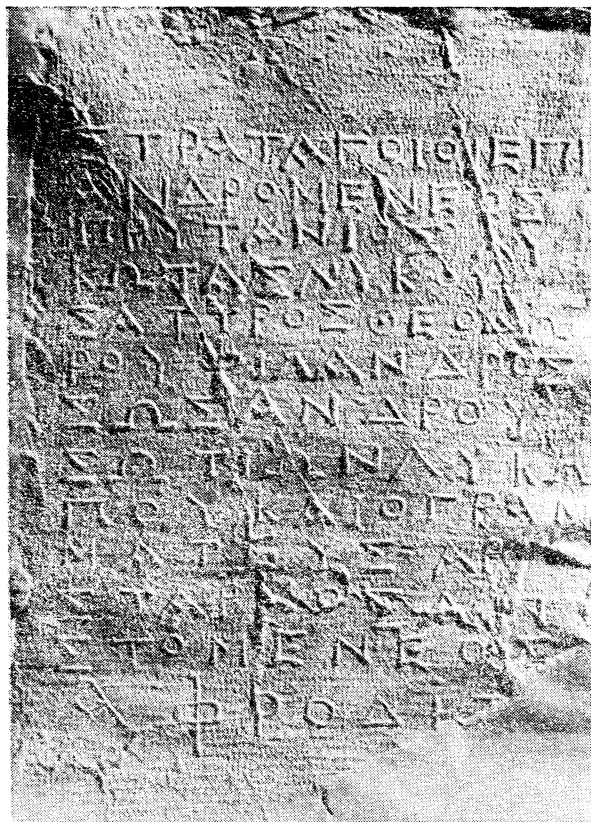 ΣΤΡΑΤΑΓΟΙΟΙΕΠΙ
ΑΝΔΡΟΜΕΝΕΟΣ
ΠΡΥΤΑΝΙΟΣ
ΚΩΤΑΣΛΥΚΟΥ
ΣΑΤΥΡΟΣΘΕΟΔΩ
ΡΟΥΦΙΛΑΝΔΡΟΣ
ΣΩΣΑΝΔΡΟΥ
ΣΩΤΙΩΝΛΥΚΑ
ΠΟΥΚΑΙΟΓΡΑΜ
ΜΑΤΕΥΣΑΡΙ
ΣΤΟΜΕΝΕΟΣ
ΑΦΡΟΔΙΤ